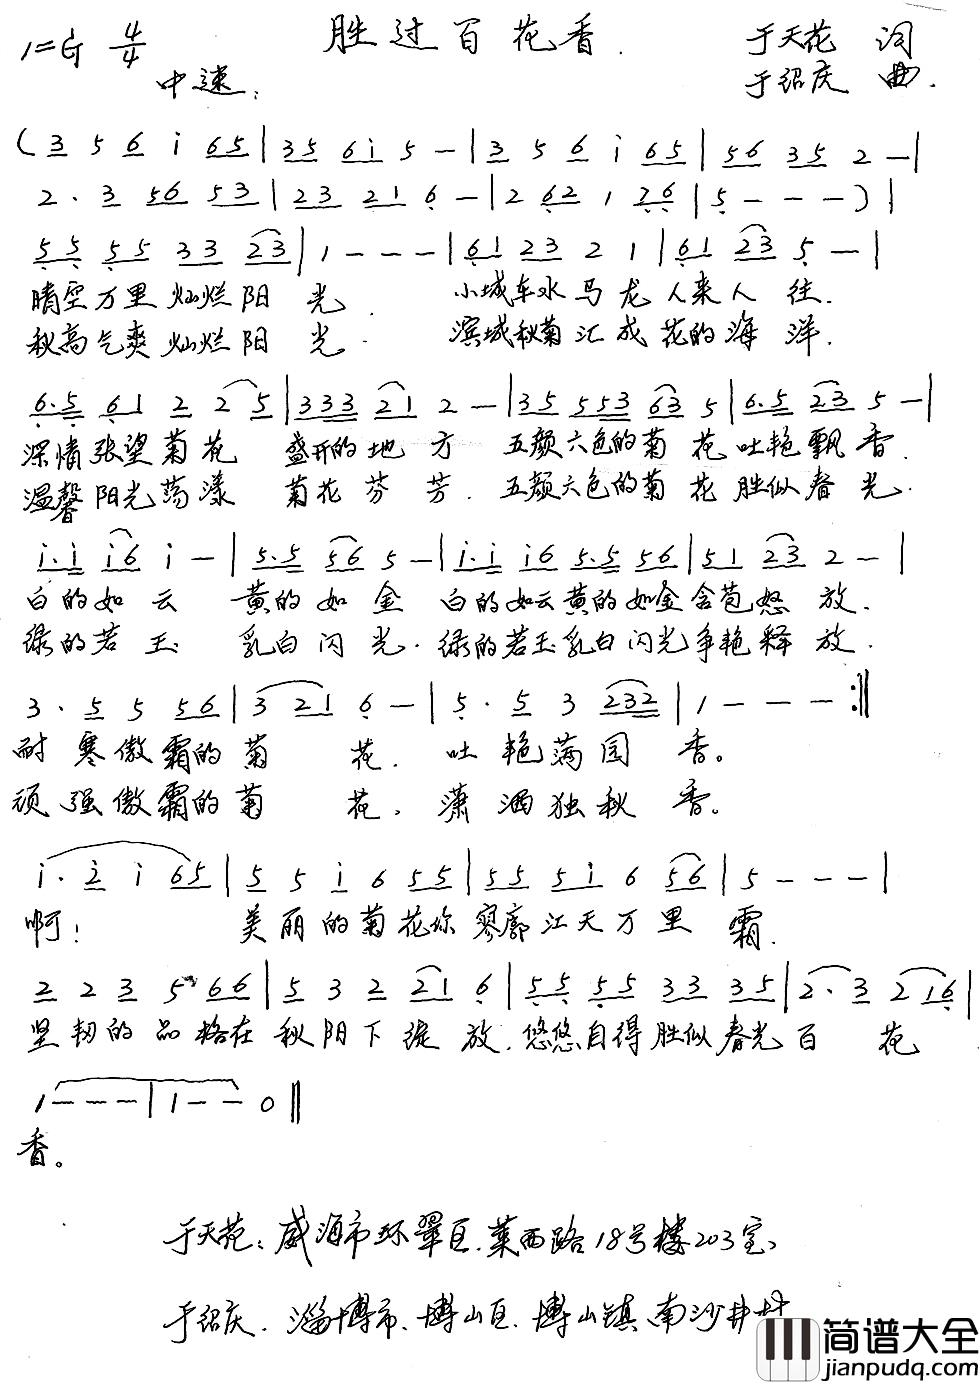 胜过百花香.
1=G 4/4
中速:
于天花 词
于绍庆 曲.
(3 5 6 i 65|35 6i 5 —|3 5 6 i 65|56 35 2 —|
2 · 3 56 53|23 21 6 —|2 62 1 76|5 - - -)|
55 55 33 23|1 - - -|61 23 2 1|61 23 5 —|
晴空万里灿烂阳 光. 小城车水马龙人来人 往.
秋高气爽灿烂阳 光. 滨城秋菊汇成花的海 洋.
6.5 61 2 2 5|333 21 2 —|35 553 63 5|6.5 23 5 —|
深情张望菊花 盛开的地 方 五颜六色的菊 花吐艳飘香.
温馨阳光荡漾 菊花芬 芳. 五颜六色的菊 花胜似春光.
i.i i6 i —|5.5 56 5 —|i.i i6 5.5 56|51 23 2 —|
白的如云 黄的如金 白的如云黄的如金含苞怒 放.
绿的若玉 乳白闪光. 绿的若玉乳白闪光争艳释 放.
3 · 5 5 56|3 21 6 —|5 · 5 3 232|1 - - - :||
耐寒傲霜的菊 花. 吐艳满园 香。
顽强傲霜的菊 花. 潇洒独秋 香。
i · 2 i 65|5 5 i 6 55|55 5i 6 56|5 - - -|
啊! 美丽的菊花你寥廓江天万里 霜.
2 2 3 5 66|5 3 2 21 6|55 55 33 35|2 · 3 2 16|
坚韧的品格在秋阳下绽放. 悠悠自得胜似春光百 花
1 - - -|1 - - 0||
香。
于天花: 威海市环翠区.莱西路18号楼203室。
于绍庆. 淄博市.博山区.博山镇.南沙井村
简谱大全
jianpudq.com